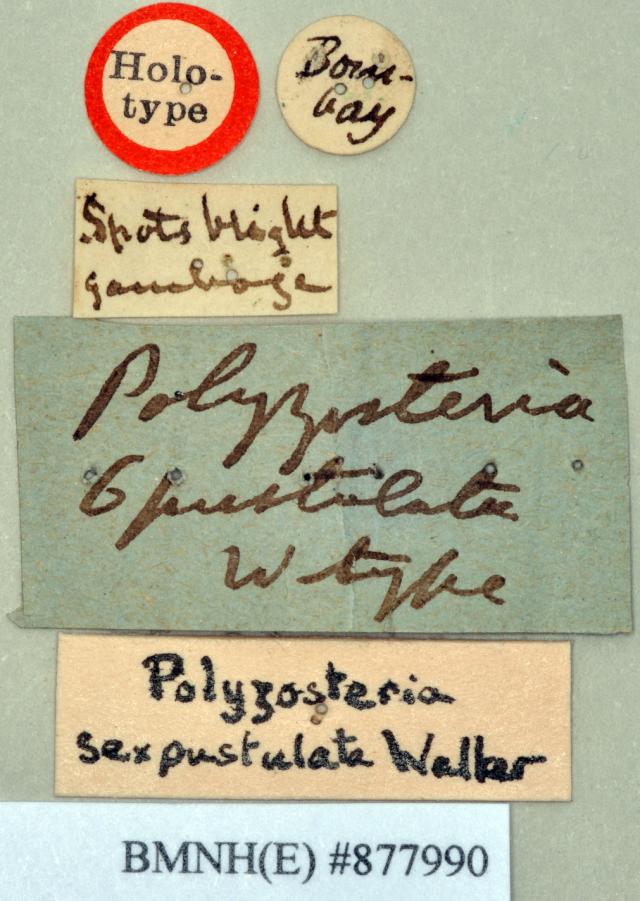 Holo-
type
Bom-
bay
Spots bright
gamboge
Polyzosteria
6pustulata
W type
Polyzosteria
sexpustulata Walker
BMNH(E) #877990